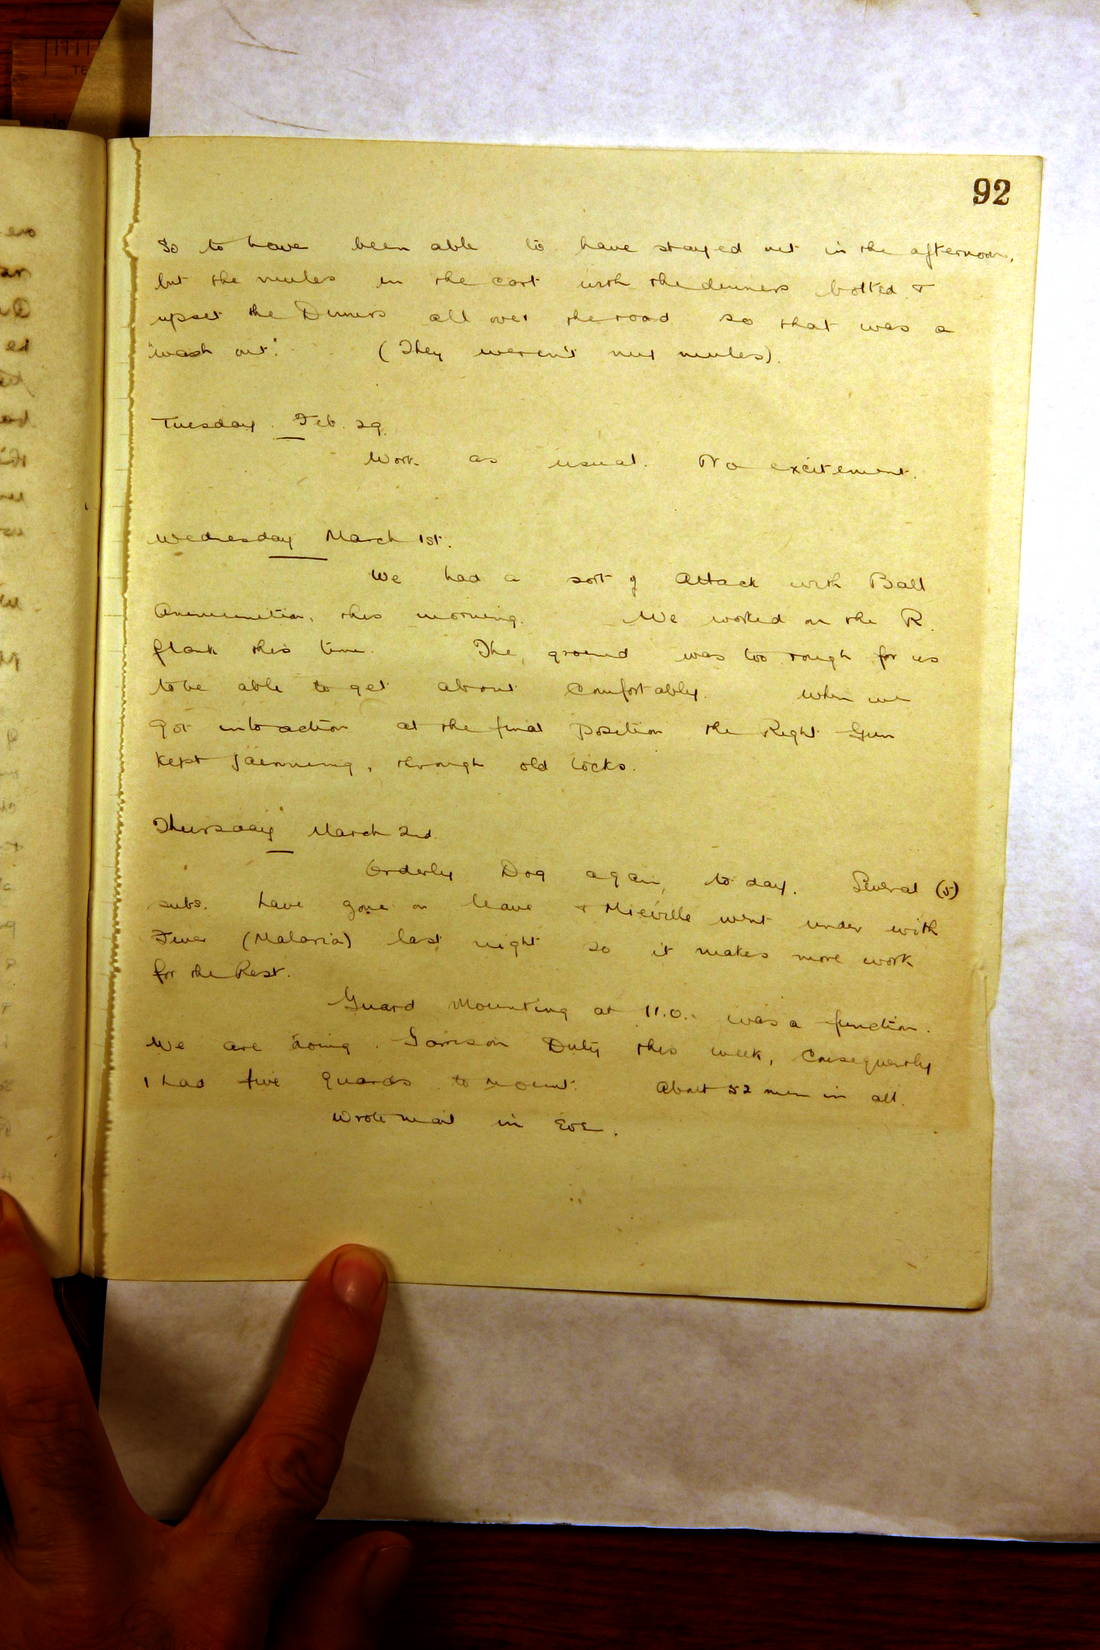 92
So to have been able to have stayed out in the afternoon,
but the mules in the cart with the dinners bolted &
upset the Dinners all over the road so that was a
"wash out". (They weren't our mules).
Tuesday. Feb. 29.
Work as usual. No excitement.
Wednesday March 1st.
We had a sort of Attack with Ball
Ammunition, this morning. We worked on the R.
flank this time. The ground was too rough for us
to be able to get about comfortably. When we
got into action at the final position the Right Gun
kept jamming, through old locks.
Thursday March 2nd.
Orderly Dog again, to day. Several (5)
subs. have gone on leave & Mieville went under with
Fever (Malaria) last night so it makes more work
for the Rest.
Guard Mounting at 11.0. was a function.
We are doing Garrison Duty this week, consequently
I had five guards to mount. About 52 men in all.
Wrote mail in Eve.